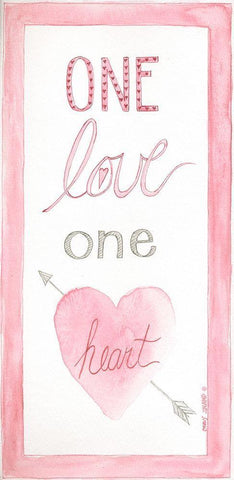 ONE
love
one
heart